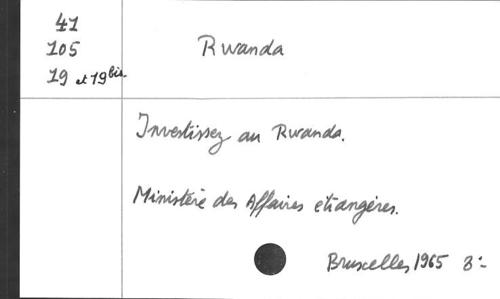 41
105
19 et 19bis.
Rwanda
Investissez au Rwanda.
Ministère des Affaires étrangères.
Bruxelles, 1965 8:-